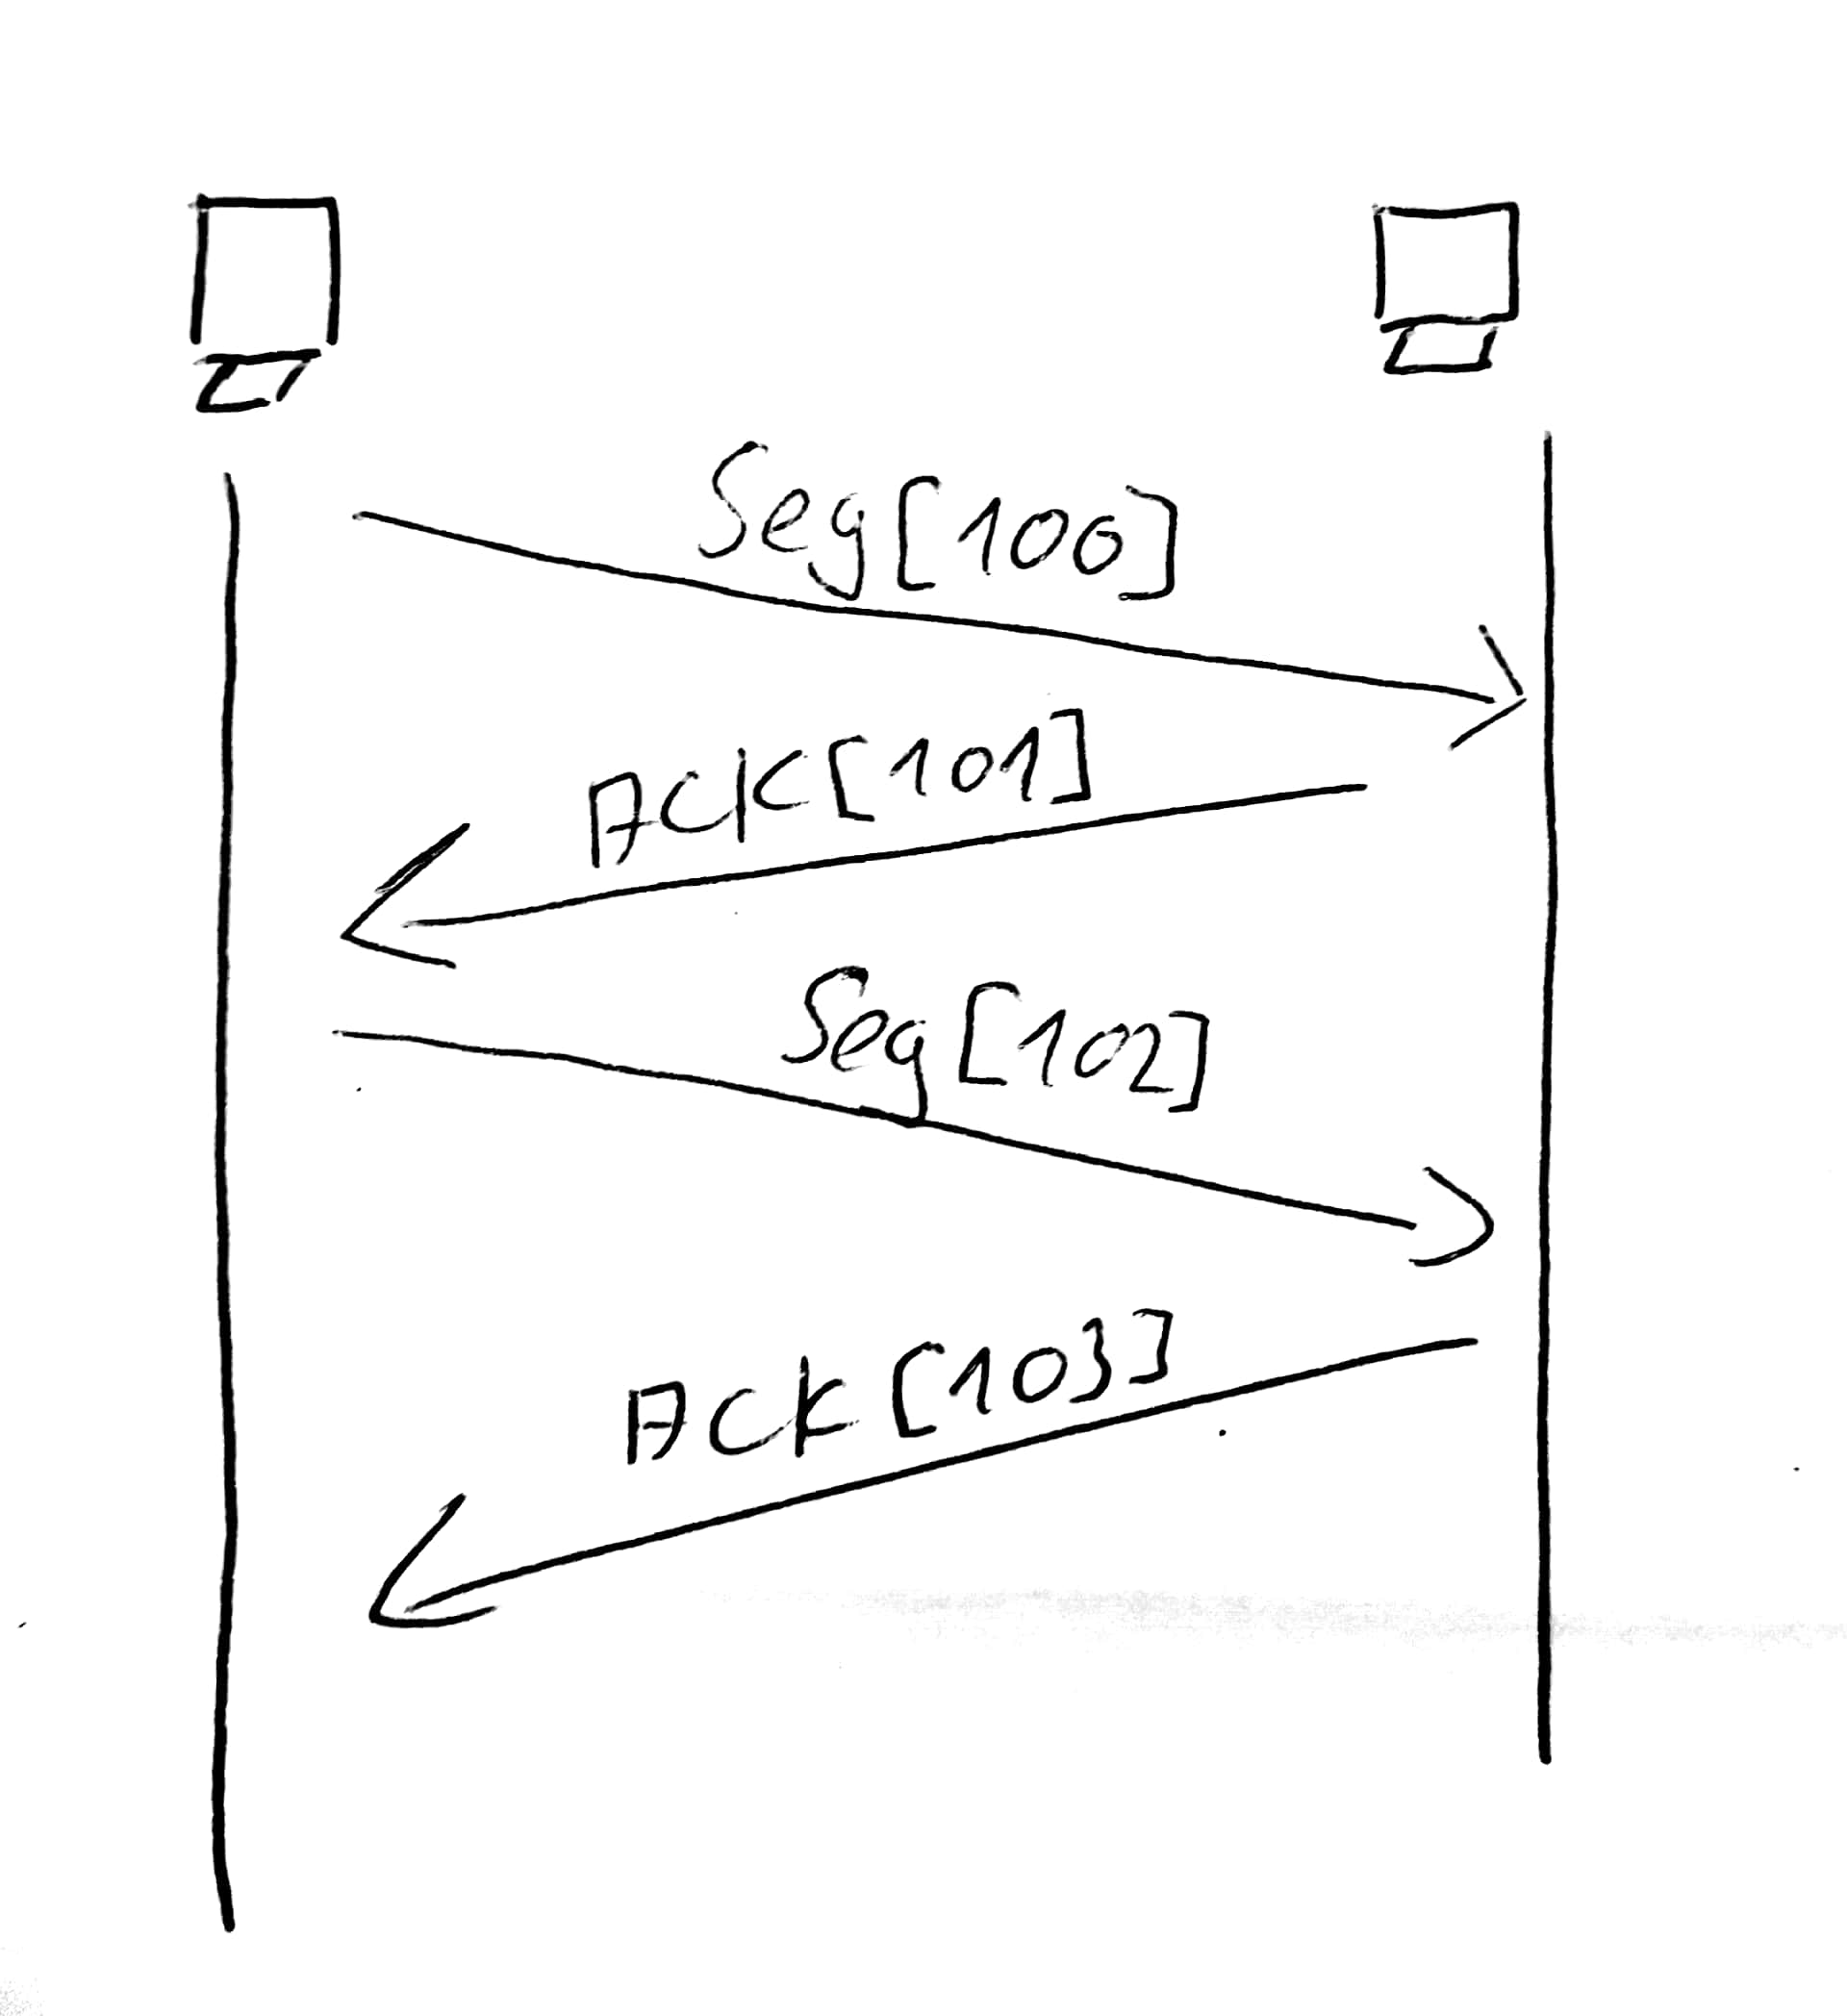 Seg[100]
ACK[101]
Seg[102]
ACK[103]